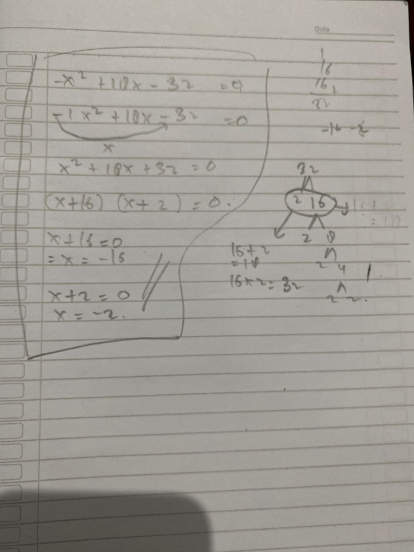 -x² + 18x - 32 = 0
-1x² + 18x - 32 = 0
x
x² + 18x + 32 = 0
(x+16) (x+2) = 0.
x+16 = 0
= x = -16
x+2 = 0
x = -2.
Date
1
16
16
32
-16 -2
32
2 16
2 8
2 4
2 2.
16+2
=18
16×2 = 32